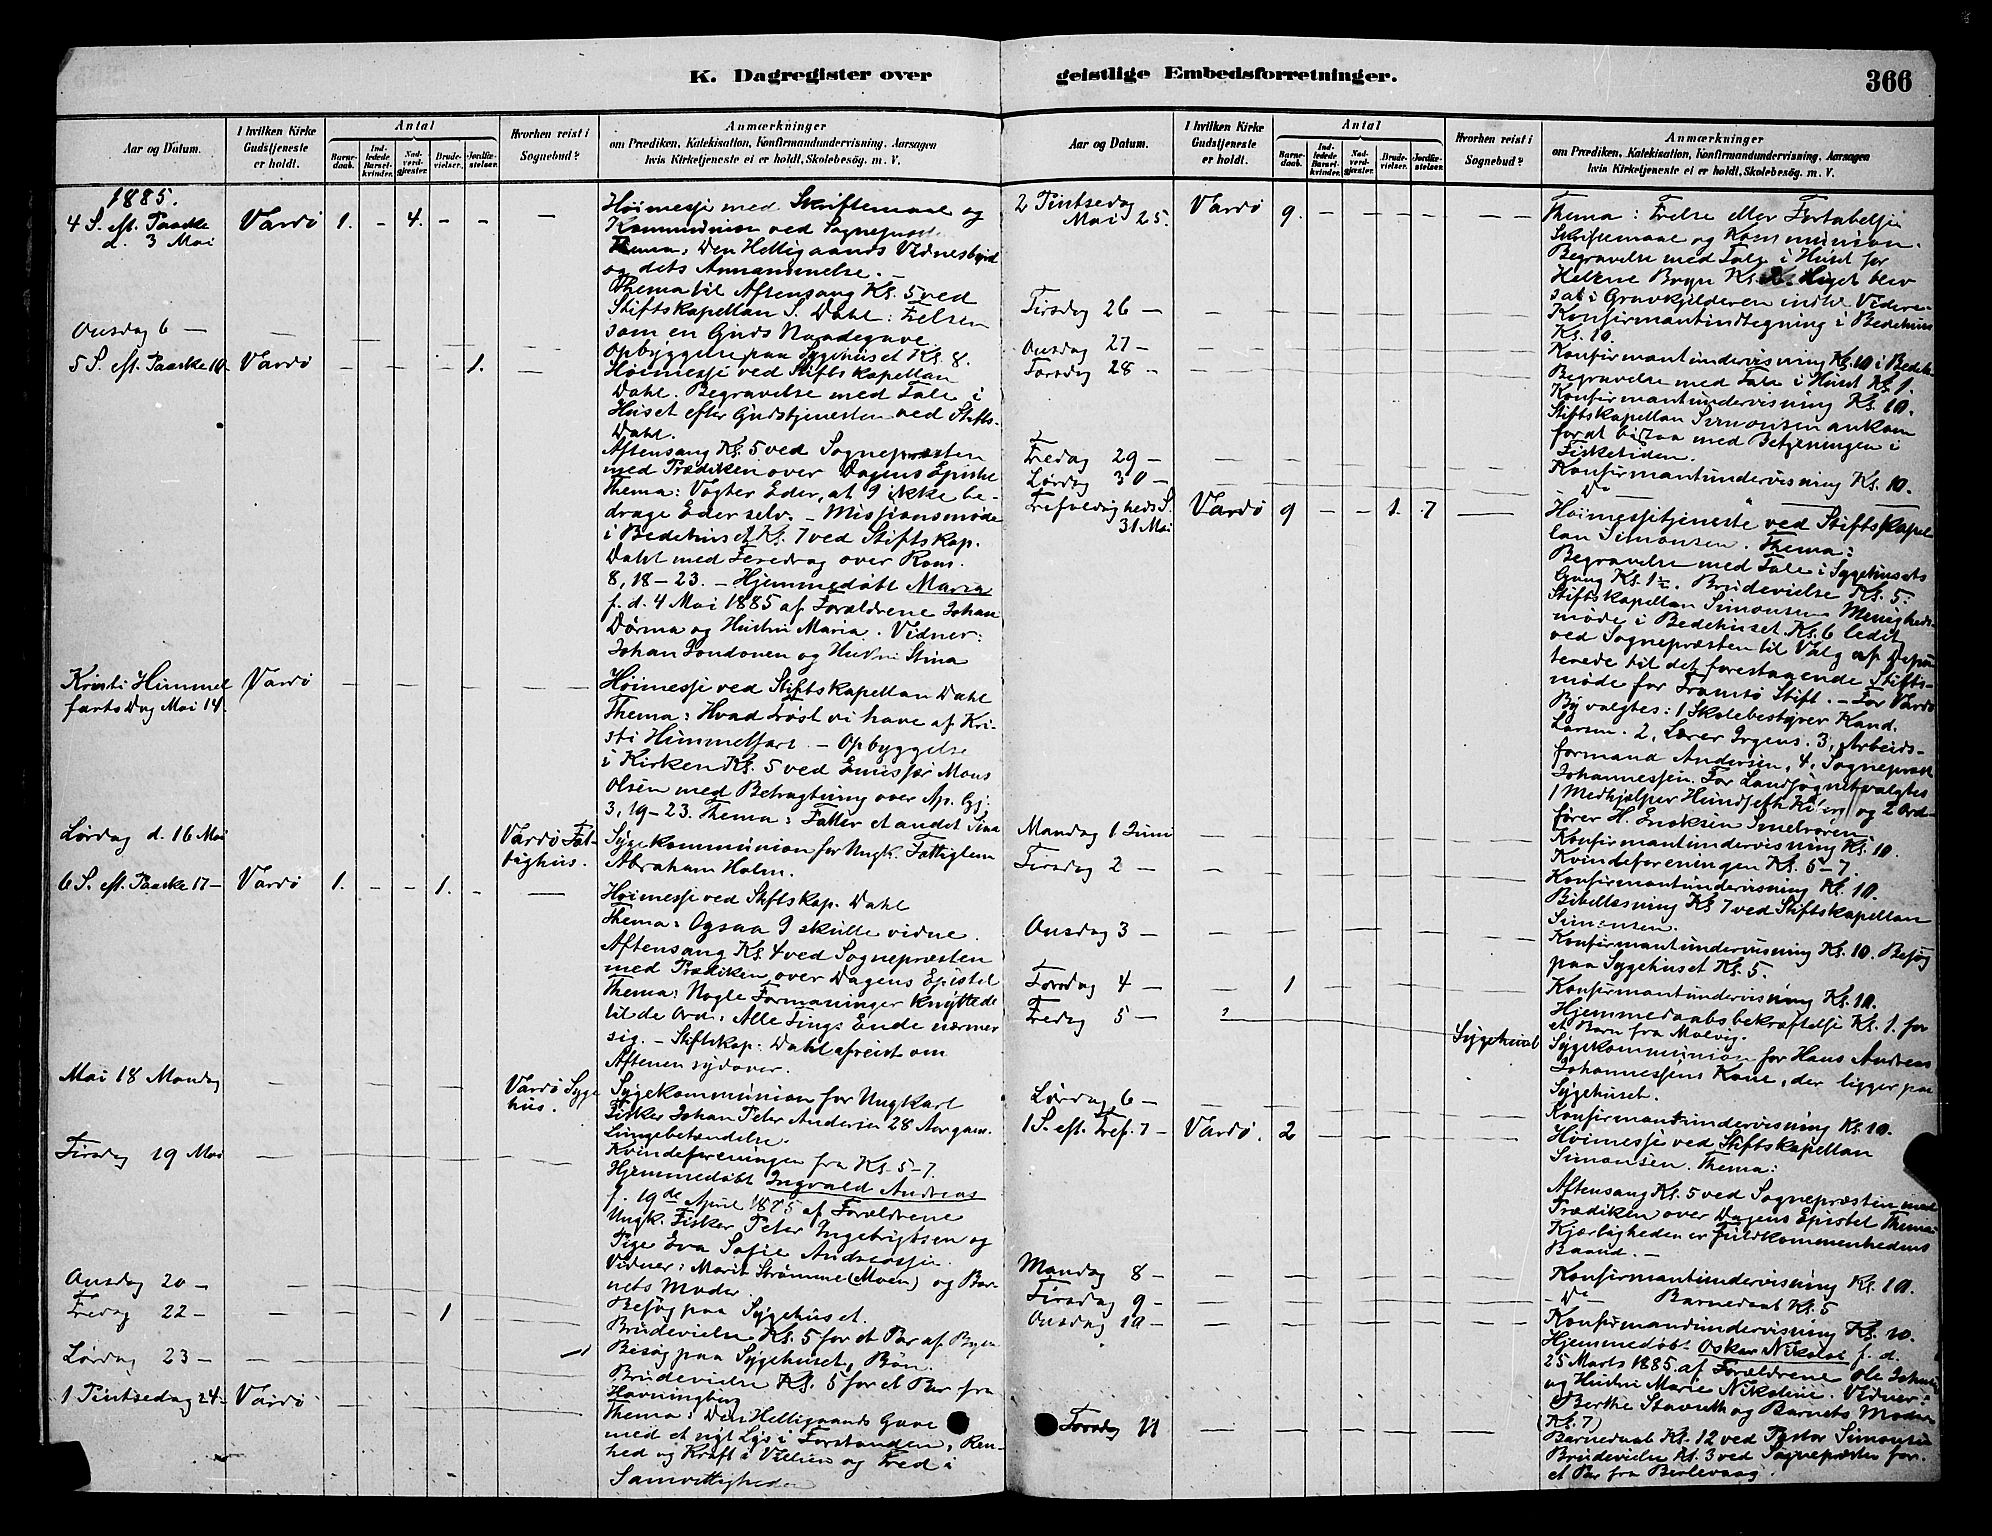 K. Dagregister over
Aar og Datum.
I hvilken Kirke Gudstjeneste er holdt.
Antal
Barne-daab.
Ind-ledede Barsel-kvinder.
Nad-verd-gjæster.
Brude-vielser.
Jordfæ-stelser.
Hvorhen reist i Sognebud?
Anmærkninger
om Prædiken, Katekisation, Konfirmandundervisning, Aarsagen
hvis Kirketjeneste ei er holdt, Skolebesög. m. V.
1885.
4 S. eft. Paaske Vardö 1. - 4. - - -
d. 3 Mai
Höimesse med Skriftemaal og
Kommunion ved Sognepræst
Thema: Den Helligaands Vidnesbyrd
og dets Annammelse. -
Thema til Aftensang Kl. 5 ved
Stiftskapellan S. Dahl: Frelsen
som en Guds Naadegave.
Onsdag 6 -
Opbyggelse paa Sygehuset Kl. 8.
5 S. eft. Paaske 10- Vardö - - - - 1. -
Höimesse ved Stiftskapellan
Dahl. Begravelse med Tale i
Huset efter Gudstjenesten ved Stifts-
Dahl.
Aftensang Kl. 5 ved Sognepræsten
med Prædiken over Dagens Epistel
Thema: Vogter Eder, at I ikke be-
drage Eder selv. - Missionsmøde
i Bedehuset Kl. 7 ved Stiftskap.
Dahl med Foredrag over Rom.
8, 18-23. - Hjemmedöbt Maria
f. d. 4 Mai 1885 af Forældrene Johan
og Hustru Maria. Vidner:
Johan og Hustru Stina
Kristi Himmel Vardö - - - - - -
farts Dag Mai 14.
Höimesse ved Stiftskapellan Dahl
Thema: Hvad Tröst vi have af Kri-
sti Himmelfart. - Opbyggelse
i Kirken Kl. 5 ved Emissær Mons
Olsen med Betragtning over Ap. Gj.
3, 19-23. Thema: Fatter et andet Sind
Lördag d. 16 Mai
Vardö Fat-
tighus.
Sygekommunion for Ungk. Fattiglem
Abraham Holm.
6 S. eft. Paaske 17- Vardö 1. - - 1. - -
Höimesse ved Stiftskap. Dahl
Thema: Ogsaa I skulle vidne.
Aftensang Kl. 4 ved Sognepræsten
med Prædiken over Dagens Epistel
Thema: Nogle Formaninger knyttede
til de Ord: Alle Tings Ende nærmer
sig. - Stiftskap. Dahl afreist om
Aftenen sydover.
Mai 18 Mandag
Vardö Syge
hus.
Sygekommunion for Ungkarl
Fisker Johan Peter Andersen 28 Aar gam.
Lungebetændelse.
Tirsdag 19 Mai
Kvindeforeningen fra Kl. 5-7.
Hjemmedöbt Ingvald Andreas
f. 19de April 1885 af Forældrene
Ungk. Fisker Peter Ingebrigtsen og
Pige Eva Sofie Andreassen.
Vidner: Marit Strömme (Moen) og Bar-
nets Moder.
Onsdag 20 -
Besög paa Sygehuset.
Fredag 22 - 1
Brudevielse Kl. 5 for et Par af Byen
Lördag 23 -
Besög paa Sygehuset, Bön.
Brudevielse Kl. 5 for et Par fra
Havningberg
1 Pintsedag 24- Vardö
Thema: Den Helligaands Gave
med et nyt Lys i Forstanden, Ren-
hed og Kraft i Villien og Fred i
Samvittigheden
geistlige Embedsforretninger.
366
Aar og Datum.
I hvilken Kirke Gudstjeneste er holdt.
Antal
Barne-daab.
Ind-ledede Barsel-kvinder.
Nad-verd-gjæster.
Brude-vielser.
Jordfæ-stelser.
Hvorhen reist i Sognebud?
Anmærkninger
om Prædiken, Katekisation, Konfirmandundervisning, Aarsagen
hvis Kirketjeneste ei er holdt, Skolebesög. m. V.
2 Pintsedag Vardö 9. - - - - -
Mai 25.
Thema: Frelse eller Fortabelse
Skriftemaal og Kommunion.
Begravelse med Tale i Huset for
Helene Kl. Liget blev
sat i Gravkjelderen indtil Videre
Tirsdag 26 -
Konfirmantindtegning i Bedehuset
Kl. 10.
Onsdag 27 -
Konfirmantundervisning Kl. 10 i Bedeh.
Torsdag 28 -
Begravelse med Tale i Huset Kl. 1.
Konfirmantundervisning Kl. 10.
Stiftskapellan Simonsen ankom
for at bistaa med Betjeningen i
Fisketiden.
Fredag 29 -
Konfirmantundervisning Kl. 10.
Lördag 30 -
Do
Trefoldigheds S. Vardö 9 - - 1. 7
31 Mai
Höimessetjeneste ved Stiftskapel
lan Simonsen. Thema:
Begravelse med Tale i Sygehusets
Gang Kl. 1½. Brudevielse Kl. 5.
Stiftskapellan Simonsen Menigheds-
möde i Bedehuset Kl. 6 ledet
ved Sognepræsten til Valg af Depu
terede til det forestaaende Stifts-
möde for Tromsö Stift. - For Vardö
By valgtes: 1 Skolebestyrer Kand.
Larsen. 2, Lærer Irgens. 3, Arbeids-
formand Andersen, 4, Sognepræst
Johannessen. For Landsognet valgtes
1 Medhjælper og 2 Ord-
förer H. Enoksen Smelroren.
Mandag 1 Juni
Konfirmantundervisning Kl. 10.
Kvindeforeningen Kl. 5-7.
Tirsdag 2 -
Konfirmantundervisning Kl. 10.
Bibellæsning Kl. 7 ved Stiftskapellan
Simonsen.
Onsdag 3 -
Konfirmantundervisning Kl. 10. Besög
paa Sygehuset Kl. 5.
Torsdag 4 - 1
Konfirmantundervisning Kl. 10.
Hjemmedaabsbekræftelse Kl. 1. for
et Barn fra Makvig.
Fredag 5 -
Sygehuset
Sygekommunion for Hans Andreas
Johannessens Kone, der ligger paa
Sygehuset.
Lördag 6 -
Konfirmantundervisning Kl. 10.
1 S. eft. Tref. 7 - Vardö. 2
Höimesse ved Stiftskapellan
Simonsen. Thema:
Aftensang Kl. 5 ved Sognepræsten med
Prædiken over Dagens Epistel Thema:
Kjærligheden er Fuldkommenhedens
Baand. -
Mandag 8 -
Konfirmantundervisning Kl. 10.
Tirsdag 9 -
- Do Barnedaab Kl. 5
Onsdag 10 -
Konfirmandundervisning Kl. 10.
Hjemmedöbt Oskar Nikolai f. d.
25 Marts 1885 af Forældrene Ole
og Hustru Marie Nikoline. Vidner:
Berthe og Barnets Moder
(Kl. 7)
Torsdag 11
Barnedaab Kl. 12 ved Pastor Simonsen
Brudevielse Kl. 3 ved Sognepræsten for
et Par fra Berlevaag.